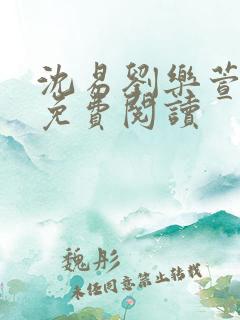 沈易劉樂萱
免費閱讀
魏彤
未经同意禁止转载